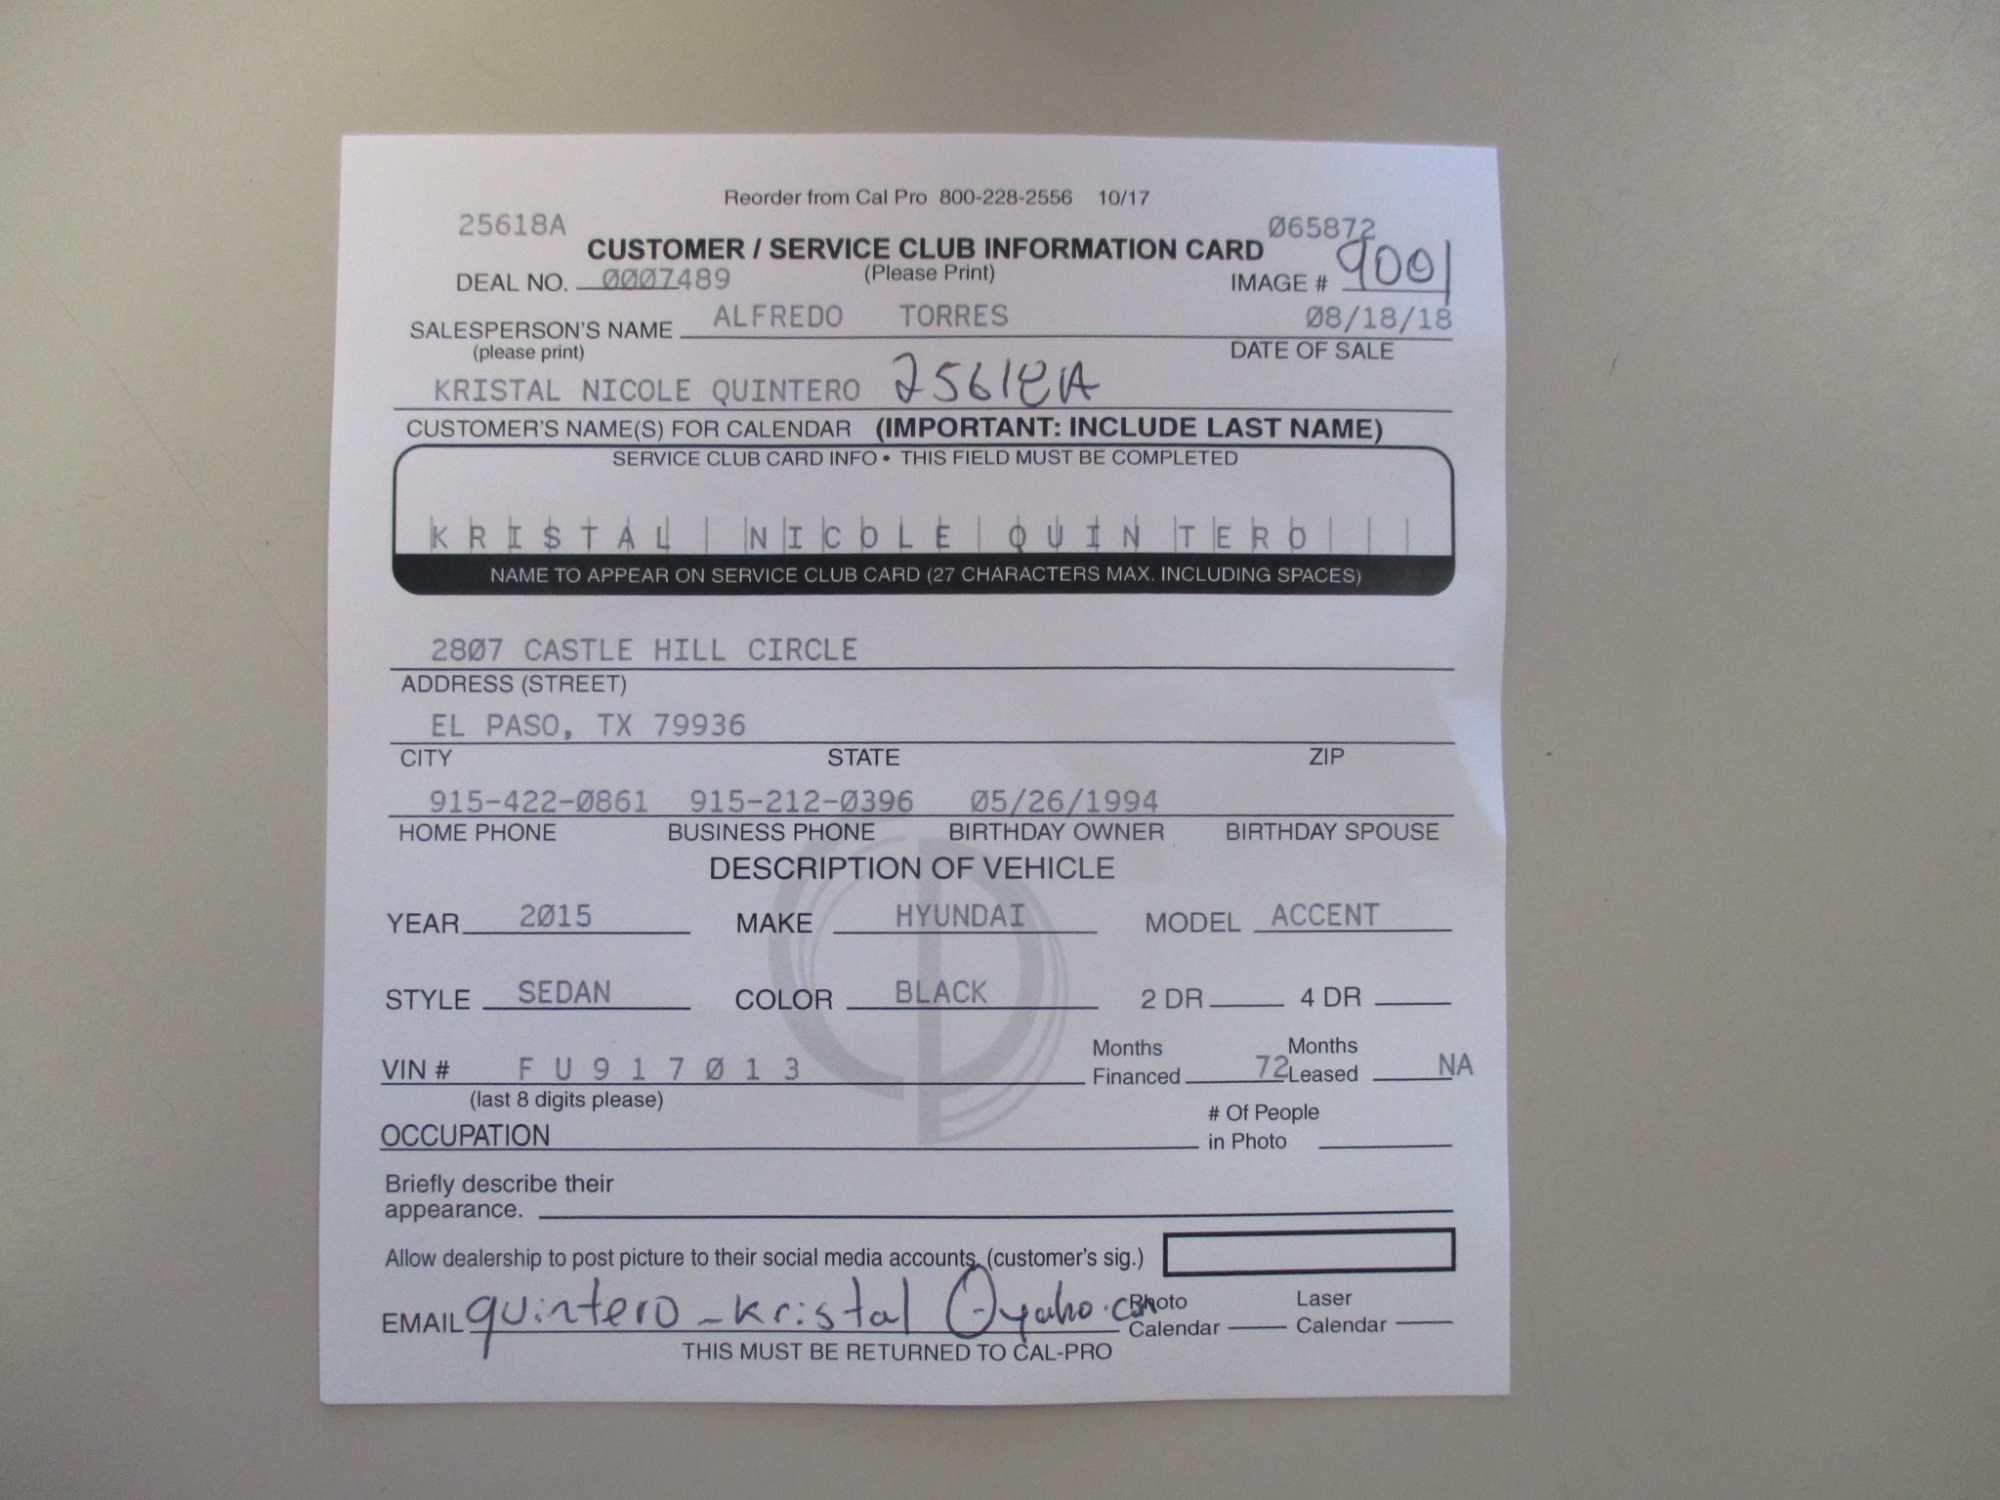 Reorder from Cal Pro 800-228-2556 10/17
25618A 065872
CUSTOMER / SERVICE CLUB INFORMATION CARD
DEAL NO. 0007489 (Please Print) IMAGE # 9001
SALESPERSON'S NAME ALFREDO TORRES 08/18/18
(please print) DATE OF SALE
KRISTAL NICOLE QUINTERO 25618A
CUSTOMER'S NAME(S) FOR CALENDAR (IMPORTANT: INCLUDE LAST NAME)
SERVICE CLUB CARD INFO • THIS FIELD MUST BE COMPLETED
KRISTAL NICOLE QUINTERO
NAME TO APPEAR ON SERVICE CLUB CARD (27 CHARACTERS MAX. INCLUDING SPACES)
2807 CASTLE HILL CIRCLE
ADDRESS (STREET)
EL PASO, TX 79936
CITY STATE ZIP
915-422-0861 915-212-0396 05/26/1994
HOME PHONE BUSINESS PHONE BIRTHDAY OWNER BIRTHDAY SPOUSE
DESCRIPTION OF VEHICLE
YEAR 2015 MAKE HYUNDAI MODEL ACCENT
STYLE SEDAN COLOR BLACK 2 DR 4 DR
VIN # F U 9 1 7 0 1 3 Months Financed 72 Months Leased NA
(last 8 digits please)
OCCUPATION # Of People in Photo
Briefly describe their
appearance.
Allow dealership to post picture to their social media accounts. (customer's sig.)
EMAIL quintero_kristal@yaho.com Photo Calendar Laser Calendar
THIS MUST BE RETURNED TO CAL-PRO